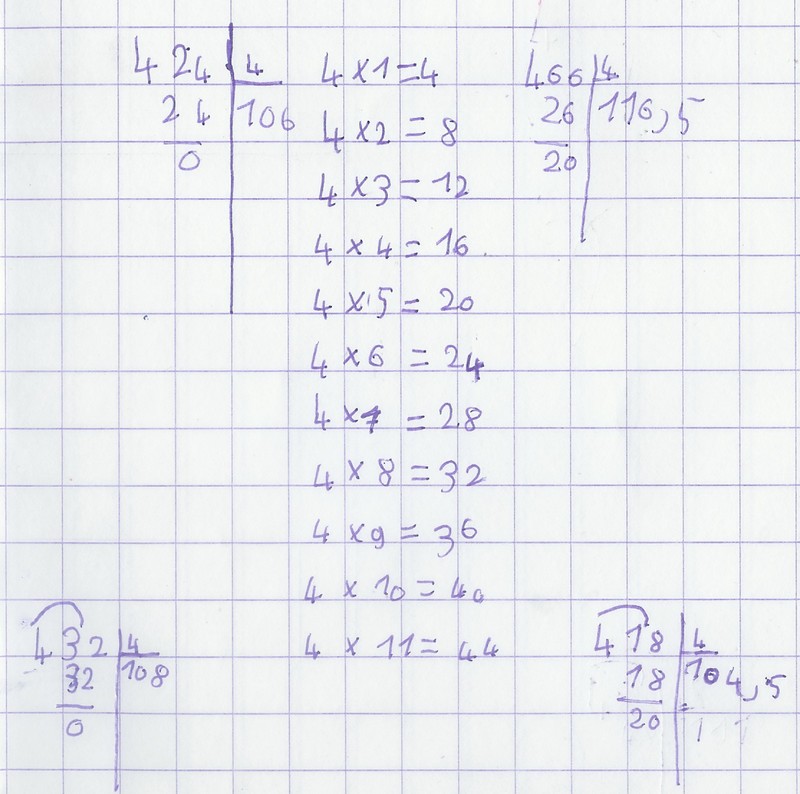 424 | 4
24 | 106
0
4 x 1 = 4
4 x 2 = 8
4 x 3 = 12
4 x 4 = 16
4 x 5 = 20
4 x 6 = 24
4 x 7 = 28
4 x 8 = 32
4 x 9 = 36
4 x 10 = 40
4 x 11 = 44
466 | 4
26 | 116,5
20
432 | 4
32 | 108
0
418 | 4
18 | 104,5
20